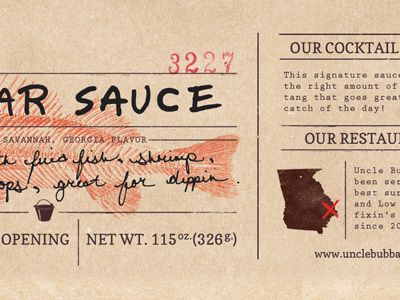 3227
AR SAUCE
SAVANNAH, GEORGIA FLAVOR
th fried fish, shrimp,
ops, great for dippin.
OPENING
NET WT. 115oz. (326g.)
OUR COCKTAIL
This signature sauc
the right amount of
tang that goes great
catch of the day!
OUR RESTAU
Uncle Bu
been ser
best sur
and Low
fixin's
since 20
www.unclebubba